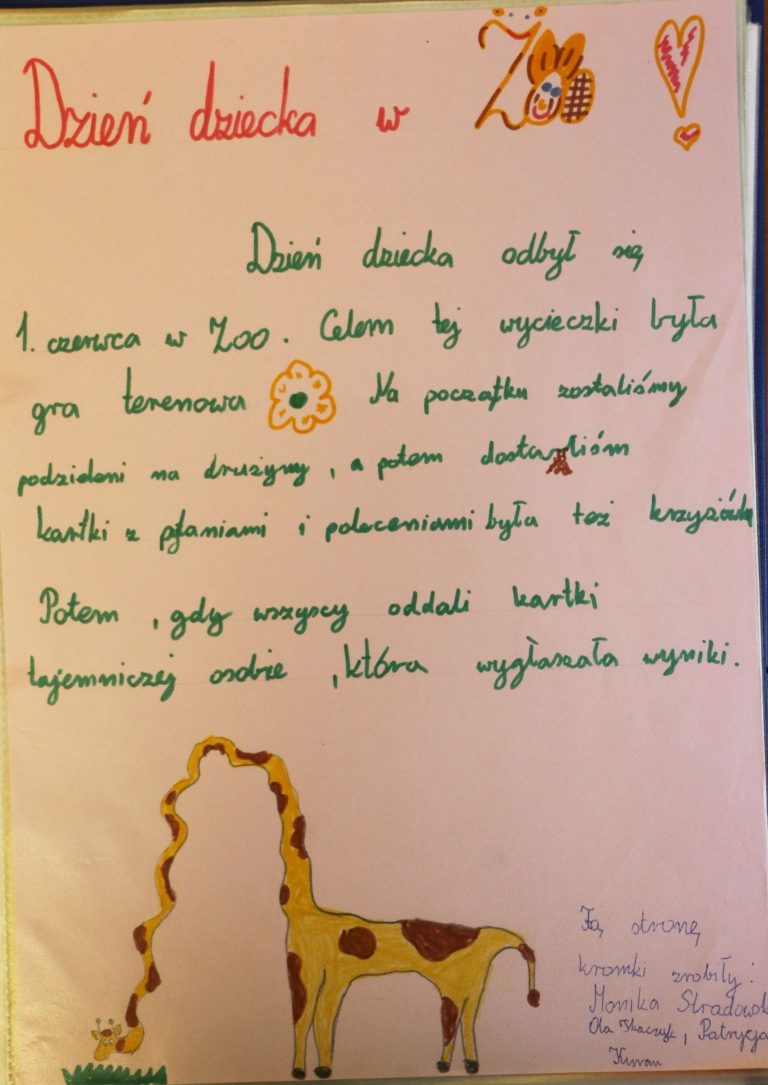 Dzień dziecka w Zoo!
Dzień dziecka odbył się
1. czerwca w Zoo. Celem tej wycieczki była
gra terenowa Na początku zostaliśmy
podzieleni na drużyny, a potem
kartki z pytaniami i poleceniami była też krzyżówka
Potem, gdy wszyscy oddali kartki
tajemniczej osobie, która wygłaszała wyniki.
Tą stronę
kroniki zrobiły:
Monika
Ola Tkaczyk, Patrycja